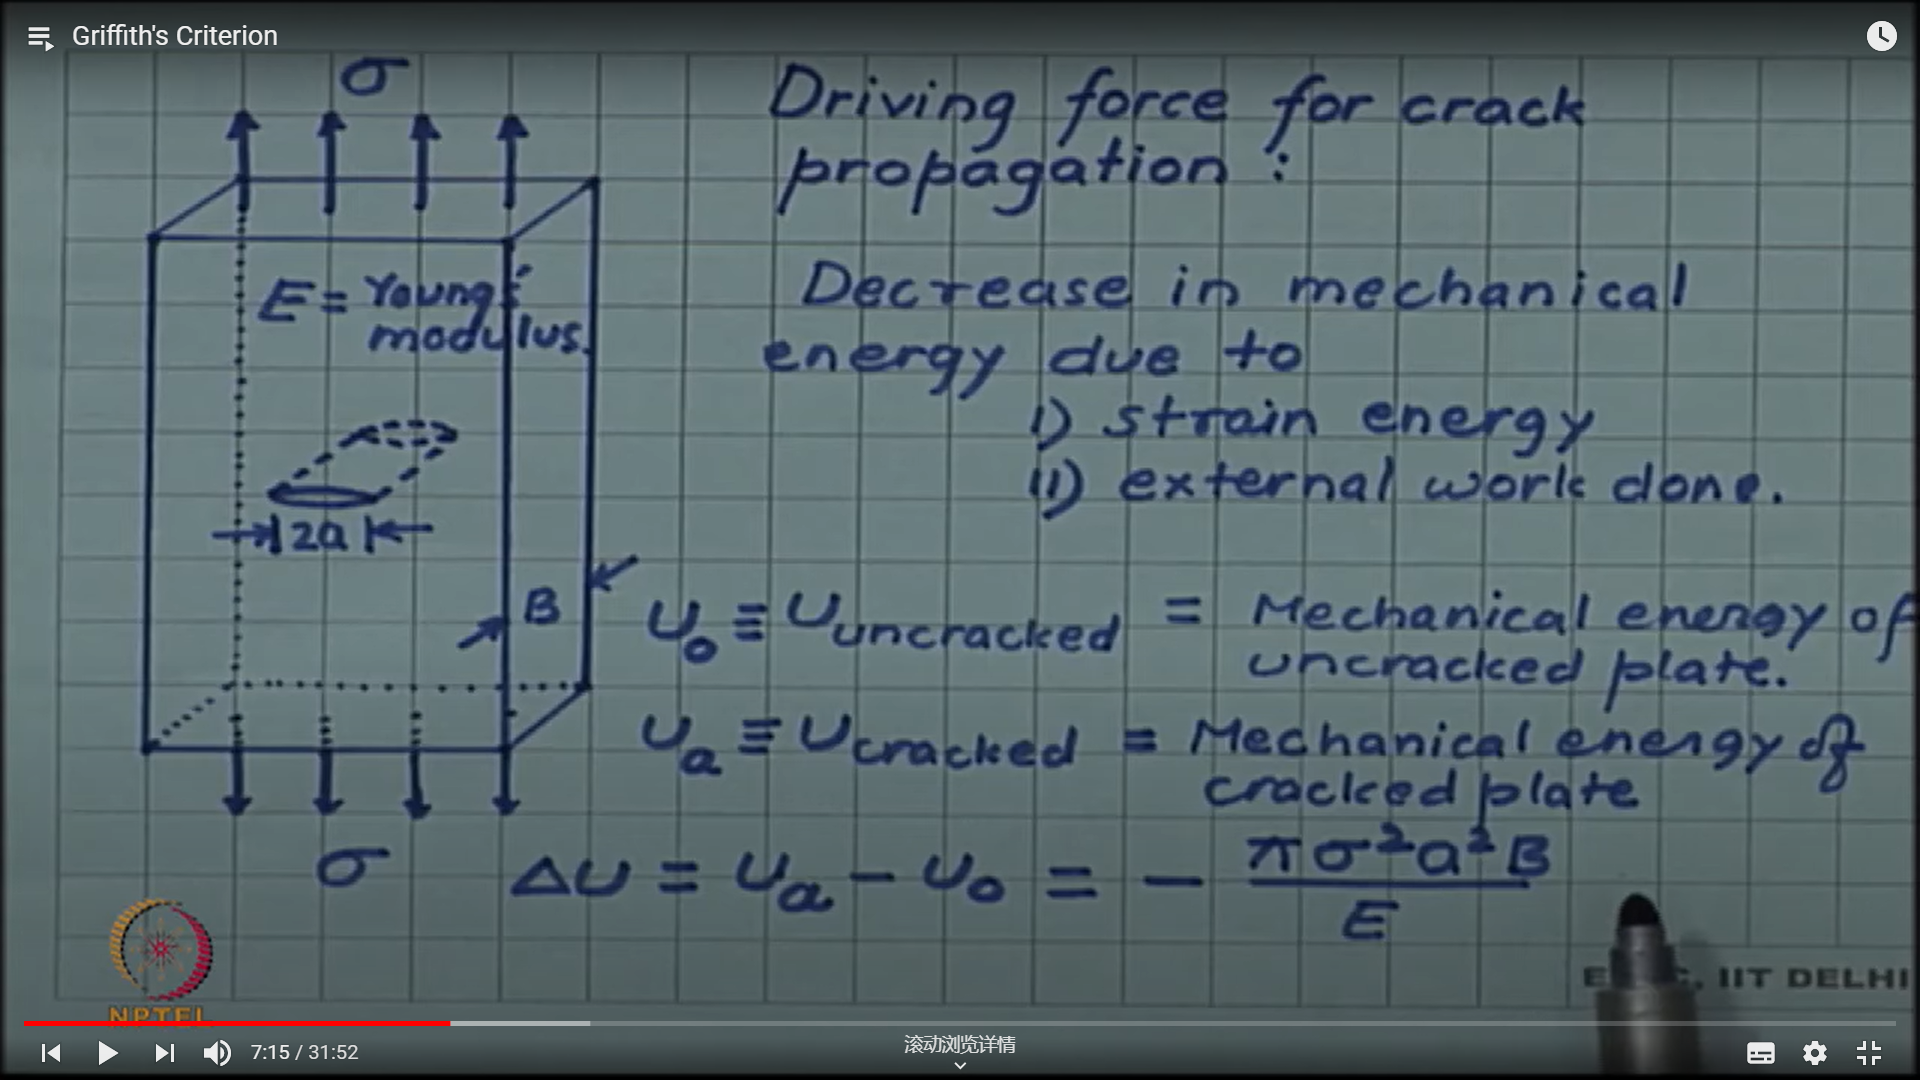 Griffith's Criterion
σ
Driving force for crack
propagation :
E = Young's
modulus.
Decrease in mechanical
energy due to
i) strain energy
ii) external work done.
2a
B
U₀ ≡ U uncracked = Mechanical energy of
uncracked plate.
Uₐ ≡ U cracked = Mechanical energy of
cracked plate
σ
ΔU = Uₐ - U₀ = - πσ²a²B
E
IIT DELHI
NPTEL
7:15 / 31:52
滚动浏览详情